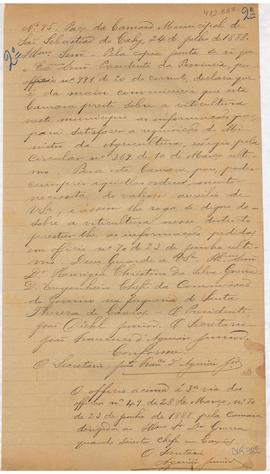 2ª
Nº 75 - Paço da Camara Municipal de
São Sebastião do Cahy, 24 de julho de 1888.
Illmo Snr - Pela copia junta se vê que
o Exmo Snr Presidente da Provincia, por
officio nº 791 de 20 do corrente, declara que
é da maior conveniencia que esta
Camara preste sobre a viticultura
neste municipio as informações que
para satisfazer a requisição do Mi-
nisterio da Agricultura, exigio pela
Circular nº 369 de 10 de Março ulti-
mo. Para esta Camara, por, poder
cumprir aquellas ordens, muito
necessita do valioso auxilio de
VSª, e assim lhe roga se digne de
sobre a viticultura nesse districto
prestar-lhe as informações pedidas
em officio nº 70 de 23 de junho ulti-
mo. Deus Guarde a VSª Illmo Snr
Dr Manoel da Silva
D. Engenheiro Chefe da Commissão
de Santa
Thereza de Caxias - O Presidente,
José junior. O Secretario
João Francisco d'Aguiar junior.
Conforme.
O Secretario, João Franco d'Aguiar Jor
O officio acima é 3ª via dos
officios nº 49 de 28 de Março, nº 70
de 23 de junho de 1888 pela Camara
dirigido ao Illmo Sr Dr Guerra
quando Chefe em Caxias
O Secretario
Aguiar Junior